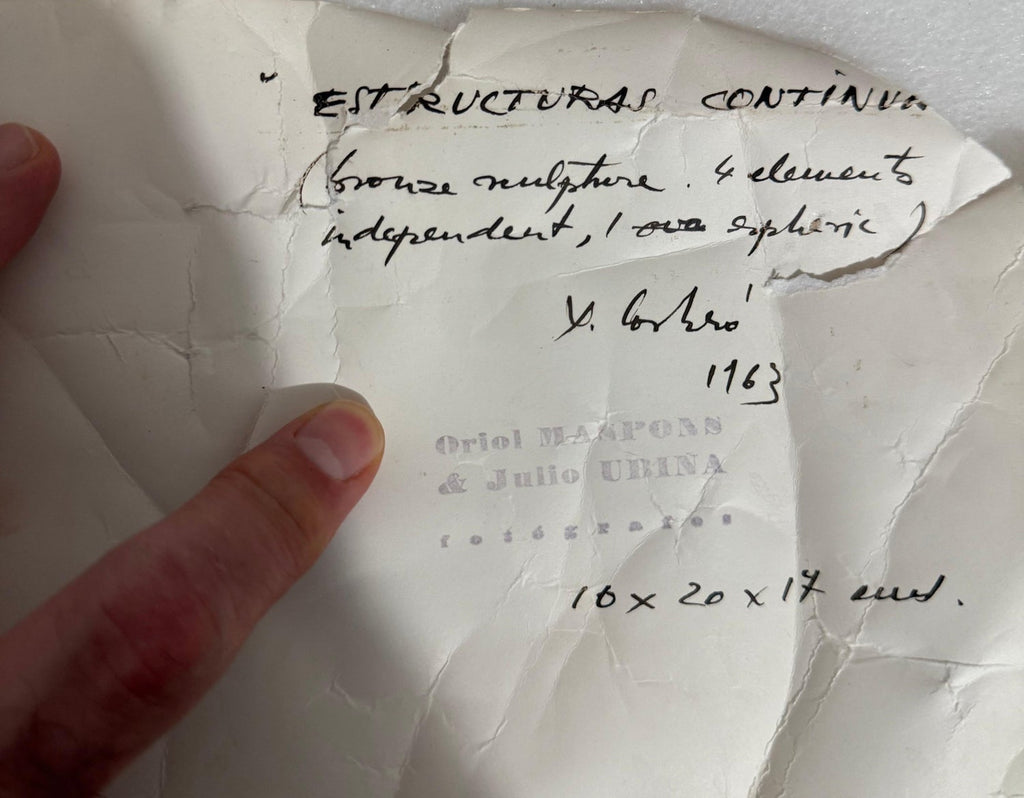 " ESTRUCTURAS CONTINUA
(bronze sculpture. 4 elements
independent, 1 ova espheric)
X. Corberó
1963
Oriol MASPONS
& Julio UBINA
fotógrafos
10 x 20 x 17 cms.